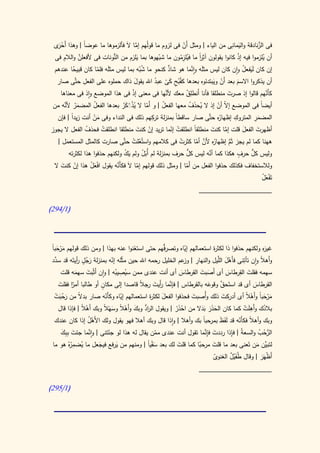 في الزَّنادقة واليَمانى من الياء | ومثل أنْ فى لزوم ما قولُهم إمّا لا فألزموها ما عوضاً | وهذا أَحْرَى
أن يُلزموا فيه إذْ كانوا يقولون آثراً ما فيُلزمون ما شبّهوها بما يَلزم من النّونات فى لأفعلنَّ واللام فى
إن كان لَيَفعلُ وإن كان ليس مثله وإنّما هو شاذٌّ كنحو ما شُبّه بما ليس مثله فلمّا كان قبيحًا عندهم
أن يذكروا الاسم بعد أنْ ويبتدئوه بعدها كقُبْحِ كىْ عبدُ الله يقولَ ذاك حملوه على الفعل حتَّى صار
كأنّهم قالوا إذ صرتَ منطلقا فأنا أنطلقُ معك لأنَّها فى معنى إذْ فى هذا الموضع وإذْ فى معناها
أيضاً فى الموضع إلاّ أنّ إذْ لا يُحْذَفُ معها الفعلُ | و أمّا لا يُذكَرُ بعدها الفعلُ المضمرُ لأنّه من
المضمر المتروك إظهارُه حتَّى صار ساقطاً بمنزلة تركِهم ذلك فى النداء وفى مَنْ أنت زيداً | فإن
أظهرتَ الفعل قلت إمّا كنتَ منطلقاً انطلقتُ إنَّما تريد إنْ كنتَ منطلقا انطلقتُ فحذفُ الفعل لا يجوز
ههنا كما لم يجز ثمَّ إظهارُه لأنّ أمّا كثرتْ فى كلامهم واستُعْمِلتْ حتَّى صارت كالمثل المستعمل |
وليس كلُّ حرفٍ هكذا كما أنّه ليس كلُّ حرف بمنزلة لم أُبَلْ ولم يكُ ولكنهم حذفوا هذا لكثرته
وللاستخفاف فكذلك حذفوا الفعل من أمّا | ومثل ذلك قولهم إمّا لا فكأنّه يقول افْعَلْ هذا إنْ كنتَ لا
تَفْعَلُ
(1/294)
غيرَه ولكنهم حذفوا ذا لكثرة استعمالهم إيّاه وتصرفُّهم حتى استغنوا عنه بهذا | ومن ذلك قولهم مَرْحَباً
وأهلاً وإن تأتِنى فأَهْلَ اللَّيل والنهار | وزعم الخليل رحمه الله حين مثَّله إنّه بمنزلة رَجُل رأيتَه قد سدَّد
سهمه فقلت القرطاسَ أى أصَبتَ القرطاسَ أى أنت عندى ممن سيُصيبُه | وإن أثبْتَ سهمه قلت
القرطاسَ أى قد استحقَّ وقوعه بالقرطاس | فإنَّما رأيت رجلاً قاصدا إلى مكان أو طالبا أمرًا فقلتَ
مَرْحَباً وأَهْلاً أى أدركتَ ذلك وأصبتَ فحذفوا الفعلَ لكثرة استعمالهم إيّاه وكأنَّه صار بدلاً من رحُبَتْ
بلادُك وأَهِلتْ كما كان الحَذَر بَدَلا من احْذَرْ | ويقول الرادُّ وبكَ وأَهْلاً وسَهْلاً وبك أَهْلاً | فإذا قال
وبك وأهلاً فكأنَّه قد لَفَظَ بمرحباً بك وأهلا | وإذا قال وبك أهلا فهو يقول ولك الأَهْلُ إذا كان عندك
الرُّحْبُ والسعةُ | فإذا رددتَ فإنَّما تقول أنت عندى ممّن يقال له هذا لو جئتَني | وإنما جئت ببِكَ
لتبيَّن مَن تعنى بعد ما قلت مرحبًا كما قلتَ لك بعد سقْياً | ومنهم من يَرفع فيجعل ما يُضمِرُه هو ما
أَظْهَرَ | وقال طُفَيْلٌ الغنوىّ
(1/295)